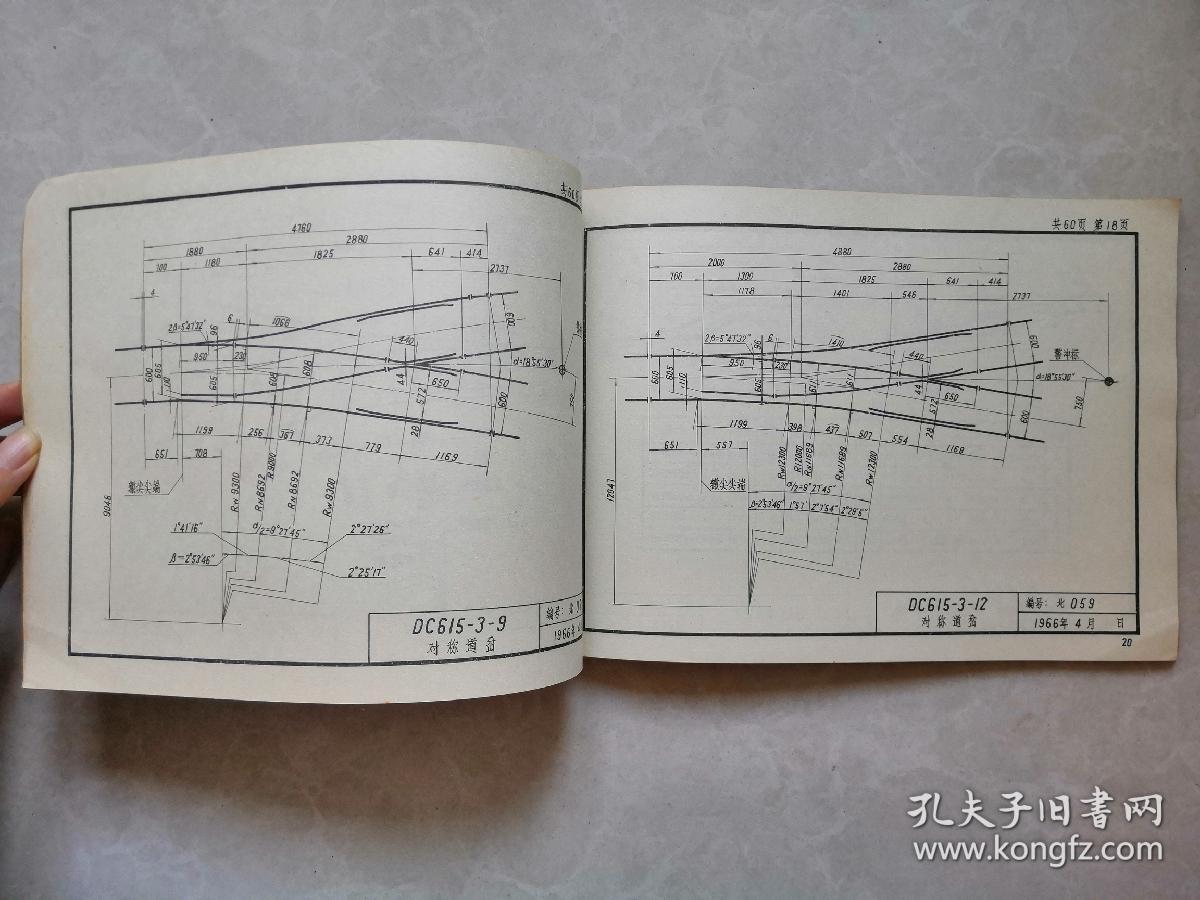 共60
4760
2880
1880
1825
641
414
700
1180
2737
4
6
1066
2β=5°47'32"
96
600
440
950
230
608
α=18°55'30"
600
605
110
605
608
44
650
572
600
750
28
1199
256
367
373
779
1169
651
708
辙尖尖端
9046
RN9300
RN8692
R9000
RN8692
RW9300
α/2=9°27'45"
1°41'16"
2°27'26"
β=2°53'46"
2°25'17"
DC615-3-9
对称道岔
编号: 北
1966年
共60页 第18页
4880
2000
2880
760
1300
1825
641
414
1178
1401
546
2737
4
6
1410
2β=5°47'32"
96
600
440
警冲标
950
230
α=18°55'30"
600
605
110
605
611
611
44
650
572
600
750
28
1199
398
437
507
554
1168
651
557
辙尖尖端
12047
RW12300
R12000
RN11689
RN11689
RW12300
α/2=9°27'45"
β=2°53'46"
1°57'
2°7'54"
2°29'5"
DC615-3-12
对称道岔
编号: 北059
1966年4月 日
20
孔夫子旧书网
www.kongfz.com